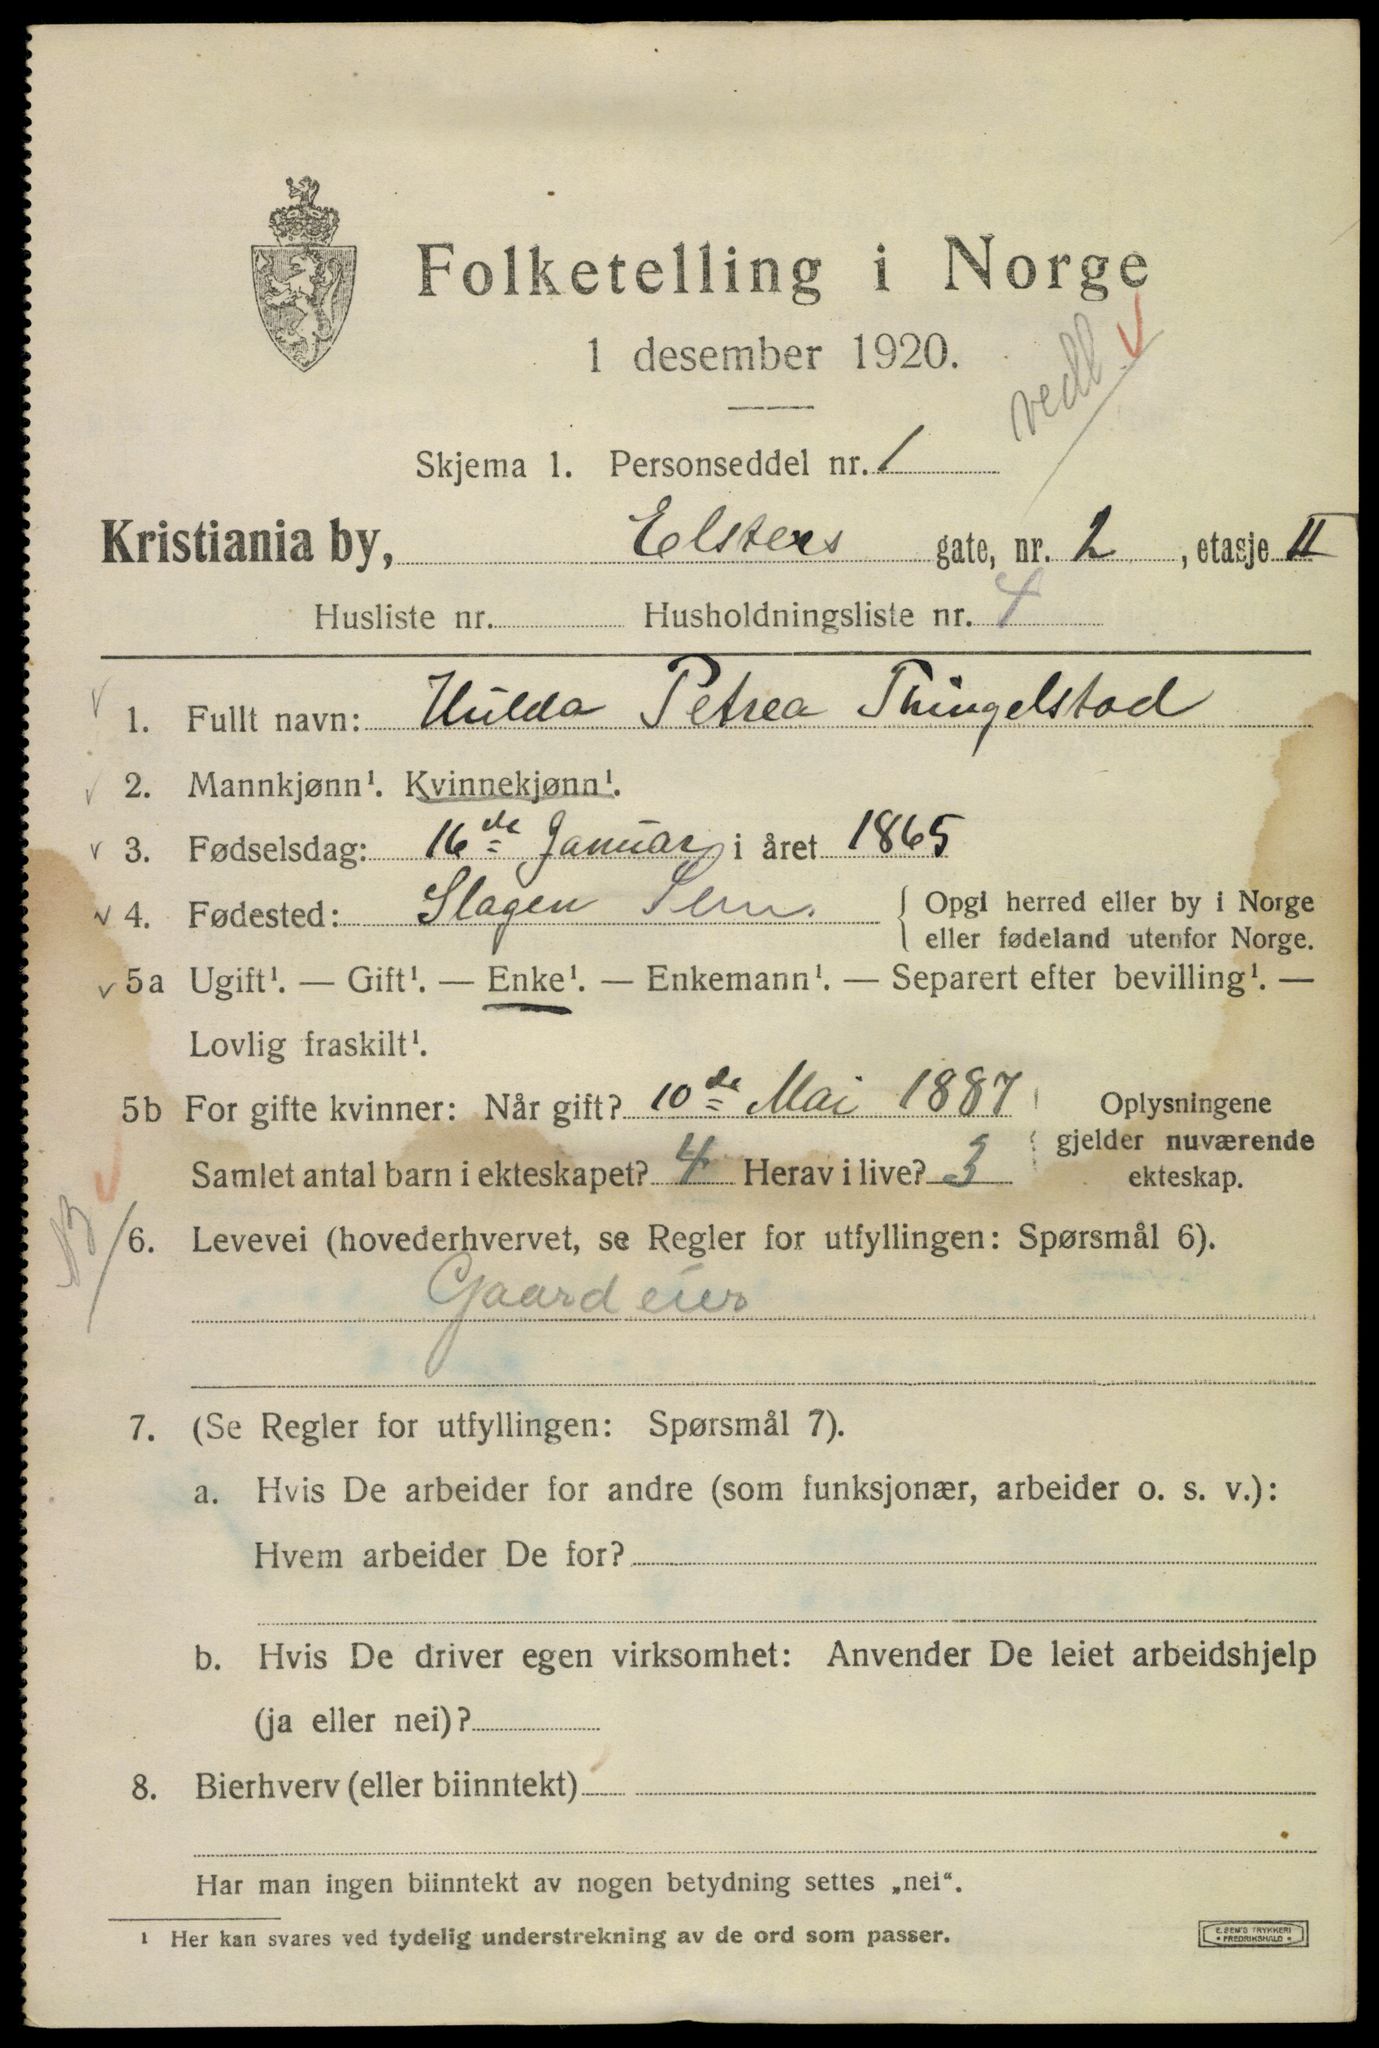 Folketelling i Norge
1 desember 1920.
vedl.
Skjema 1. Personseddel nr. 1
Kristiania by, Elsters gate, nr. 2, etasje II
Husliste nr. Husholdningsliste nr. 4
1. Fullt navn: Hulda Petrea Thingelstad
2. Mannkjønn¹. Kvinnekjønn¹.
3. Fødselsdag: 16de Januar i året 1865
4. Fødested: Slagen Sem. { Opgi herred eller by i Norge
eller fødeland utenfor Norge.
5a Ugift¹. — Gift¹. — Enke¹. — Enkemann¹. — Separert efter bevilling¹. —
Lovlig fraskilt¹.
5b For gifte kvinner: Når gift? 10de Mai 1887
Samlet antal barn i ekteskapet? 4 Herav i live? 3
Oplysningene
gjelder nuværende
ekteskap.
6. Levevei (hovederhvervet, se Regler for utfyllingen: Spørsmål 6).
Gaardeier
7. (Se Regler for utfyllingen: Spørsmål 7).
a. Hvis De arbeider for andre (som funksjonær, arbeider o. s. v.):
Hvem arbeider De for?
b. Hvis De driver egen virksomhet: Anvender De leiet arbeidshjelp
(ja eller nei)?
8. Bierhverv (eller biinntekt)
Har man ingen biinntekt av nogen betydning settes „nei“.
¹ Her kan svares ved tydelig understrekning av de ord som passer.
E. SEM'S TRYKKERI
• FREDRIKSHALD •